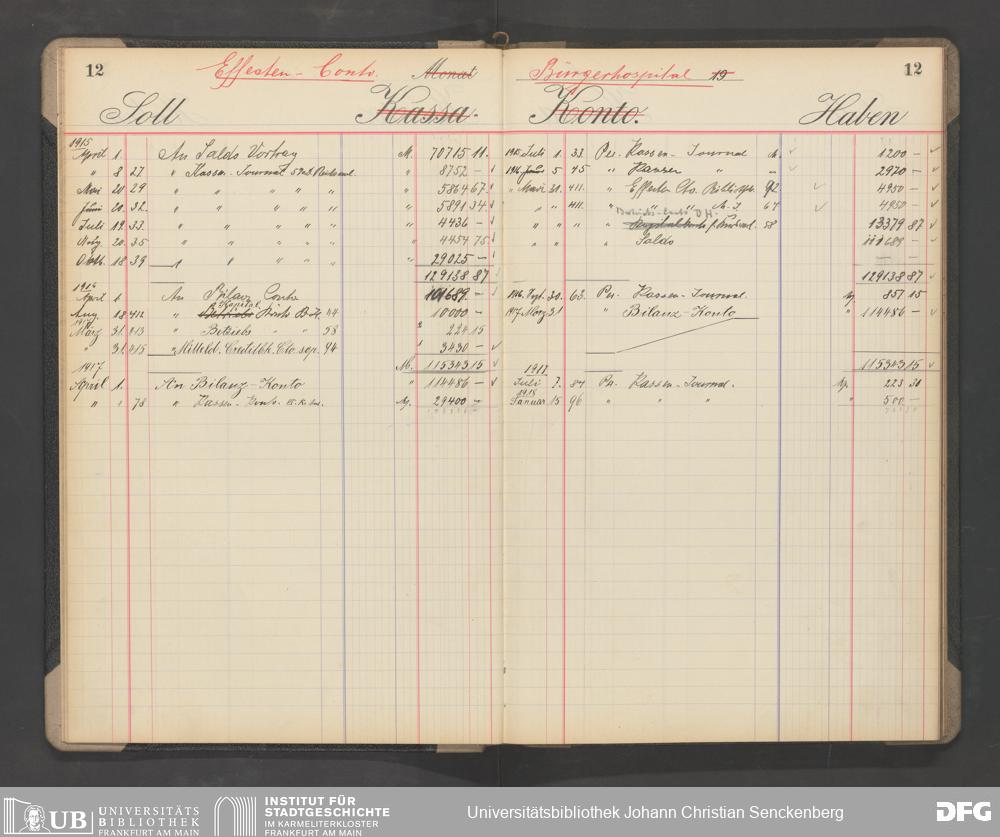 12 Effecten-Conto. Monat Bürgerhospital 19 12
Soll Kassa. Konto. Haben
1915
April 1. An Saldo Vortrag M. 70715 11.
" 8 27 " Kassen-Journal " 8752 —
Mai 20 29 " " " " " " 5864 67
Juni 20. 32. " " " " " " 5891 34
Juli 12. 33. " " " " " " 4436 —
Nov. 20. 35 " " " " " " 4454 75
18 39 " " " " " 29025 —
129138 87
1916
April 1. An Bilanz Conto 101689. —
Aug. 18 412 " Kapital 44 10000 —
1917
März 31. 413 " Betriebs " " 58 224 15
" 31. 415 " Mitteld. Creditbk. Cto. sep. 94 3430 —
M. 115343 15
1917
April 1. An Bilanz-Konto " 114486 —
" " 78 " Kassen-Konto M. 29400 —
1915 Juli 1. 33. Per Kassen-Journal M. 1200 —
1916 5 45 " Kassen " " 2920 —
" 31. 411. " Effecten Cto. 92 4950 —
" " " 411. " " " 67 4950 —
" " " " 58 13379 87
" " " " Saldo 111689 —
129138 87
1916. Sept. 30. 63. Per Kassen-Journal M. 857 15
1917. März 31 " Bilanz-Konto " 114486 —
115343 15
Juli 7. 84 Per Kassen-Journal. M. 223 30
1918
Januar 15 96 " " " " 500 —
UB UNIVERSITÄTS
BIBLIOTHEK
FRANKFURT AM MAIN
INSTITUT FÜR
STADTGESCHICHTE
IM KARMELITERKLOSTER
FRANKFURT AM MAIN
Universitätsbibliothek Johann Christian Senckenberg
DFG